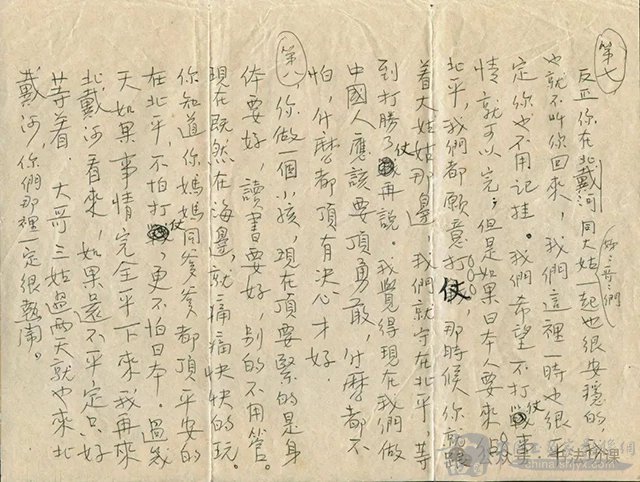 第七
反正你在北戴河同大姑一起也很安穩的，我
也就不叫你回來，我們這裡一時也很
定，你也不用記挂。我們希望不打仗事
情就可以完；但是如果日本人要來
北平，我們都願意打仗，那時候你就跟
着大姑姑那邊，我們就守在北平，等
到打勝了仗再說。我覺得現在我們做
中國人應該要頂勇敢，什麼都不
怕，什麼都頂有決心才好。
第八，你做一個小孩，現在頂要緊的是身
体要好，讀書要好，別的不用管。
現在既然在海邊，就痛痛快快的玩。
你知道你媽媽同爹爹都頂平安的
在北平，不怕打仗，更不怕日本。過幾
天如果事情完全平下來，我再來
北戴河看來，如果還不平定，只好
等着。大哥三姑過兩天就也來北
戴河，你們那裡一定很熱鬧。